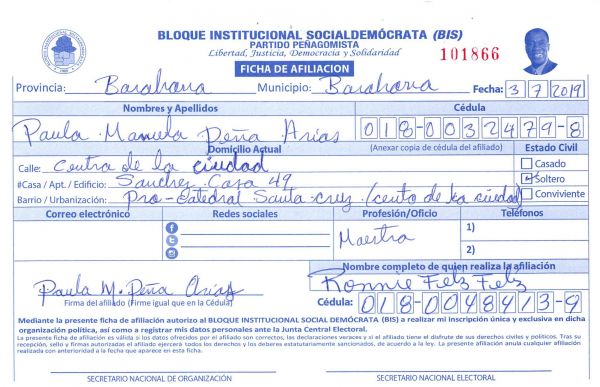 BLOQUE INSTITUCIONAL SOCIALDEMÓCRATA (BIS)
PARTIDO PEÑAGOMISTA
Libertad, Justicia, Democracia y Solidaridad
101866
FICHA DE AFILIACION
Provincia: Barahona Municipio: Barahona Fecha: 3/7/2019
Nombres y Apellidos Cédula
Paula Manuela Peña Arias 018-0032479-8
Domicilio Actual (Anexar copia de cédula del afiliado) Estado Civil
Calle: centro de la ciudad Casado
#Casa / Apt. / Edificio: Sanchez Casa 49 Soltero
Barrio / Urbanización: Pro-Catedral Santa cruz (cento de la ciudad) Conviviente
Correo electrónico Redes sociales Profesión/Oficio Teléfonos
Maestra 1)
2)
Nombre completo de quien realiza la afiliación
Paula M. Peña Arias Ronnie Feliz Feliz
Firma del afiliado (Firme igual que en la Cédula) Cédula: 018-0048413-9
Mediante la presente ficha de afiliación autorizo al BLOQUE INSTITUCIONAL SOCIAL DEMÓCRATA (BIS) a realizar mi inscripción única y exclusiva en dicha
organización política, así como a registrar mis datos personales ante la Junta Central Electoral.
La presente ficha de afiliación es válida si los datos ofrecidos por el afiliado son correctos, las declaraciones veraces y si el afiliado tiene el disfrute de sus derechos civiles y políticos. Tras su
recepción, sello y firmas autorizadas el afiliado ejercerá todos los derechos y los deberes estatutariamente sancionados, de acuerdo a la ley. La presente afiliación anula cualquier afiliación
realizada con anterioridad a la fecha que aparece en esta ficha.
SECRETARIO NACIONAL DE ORGANIZACIÓN SECRETARIO NACIONAL ELECTORAL